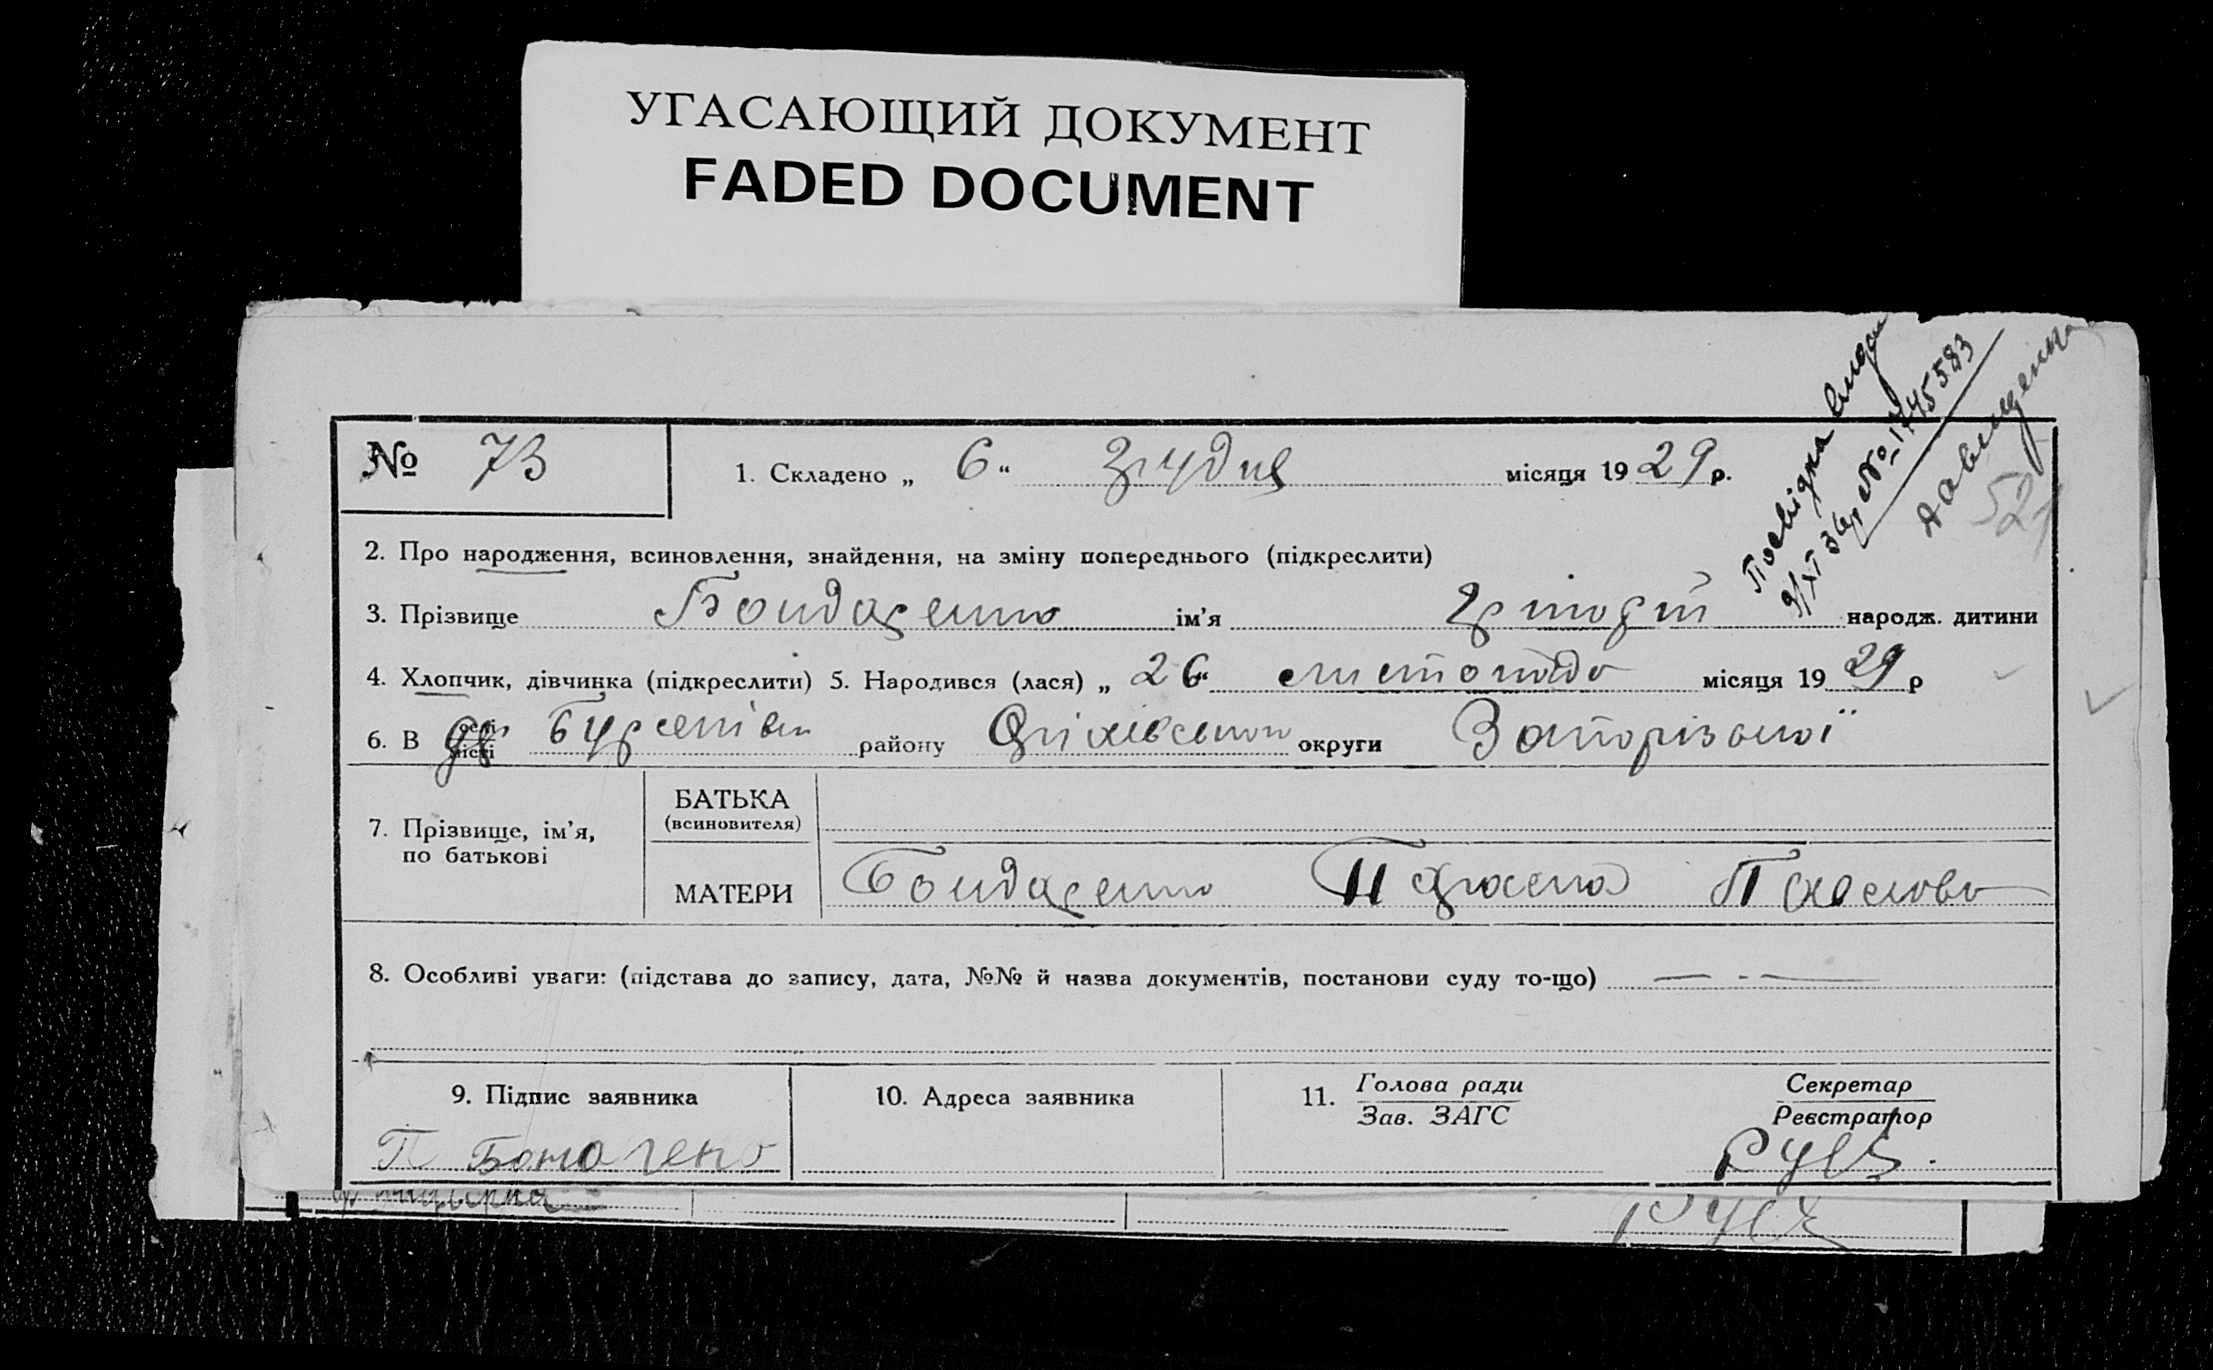 УГАСАЮЩИЙ ДОКУМЕНТ
FADED DOCUMENT
Посвідка видан
9/XI 36р № 1445583
№ 73
1. Складено „ 6 “ грудня місяця 19 29 р.
521
2. Про народження, всиновлення, знайдення, на зміну попереднього (підкреслити)
3. Прізвище Бондаренко ім’я Грігорій народж. дитини
4. Хлопчик, дівчинка (підкреслити) 5. Народився (лася) „ 26 “ листопада місяця 19 29 р
6. В селі місті району Оріхівського округи Запорізької
7. Прізвище, ім’я, по батькові
БАТЬКА
(всиновителя)
МАТЕРИ Бондаренко Павловна
8. Особливі уваги: (підстава до запису, дата, №№ й назва документів, постанови суду то-що) — - —
9. Підпис заявника
10. Адреса заявника
11. Голова ради
Зав. ЗАГС
Секретар
Реєстратор
П